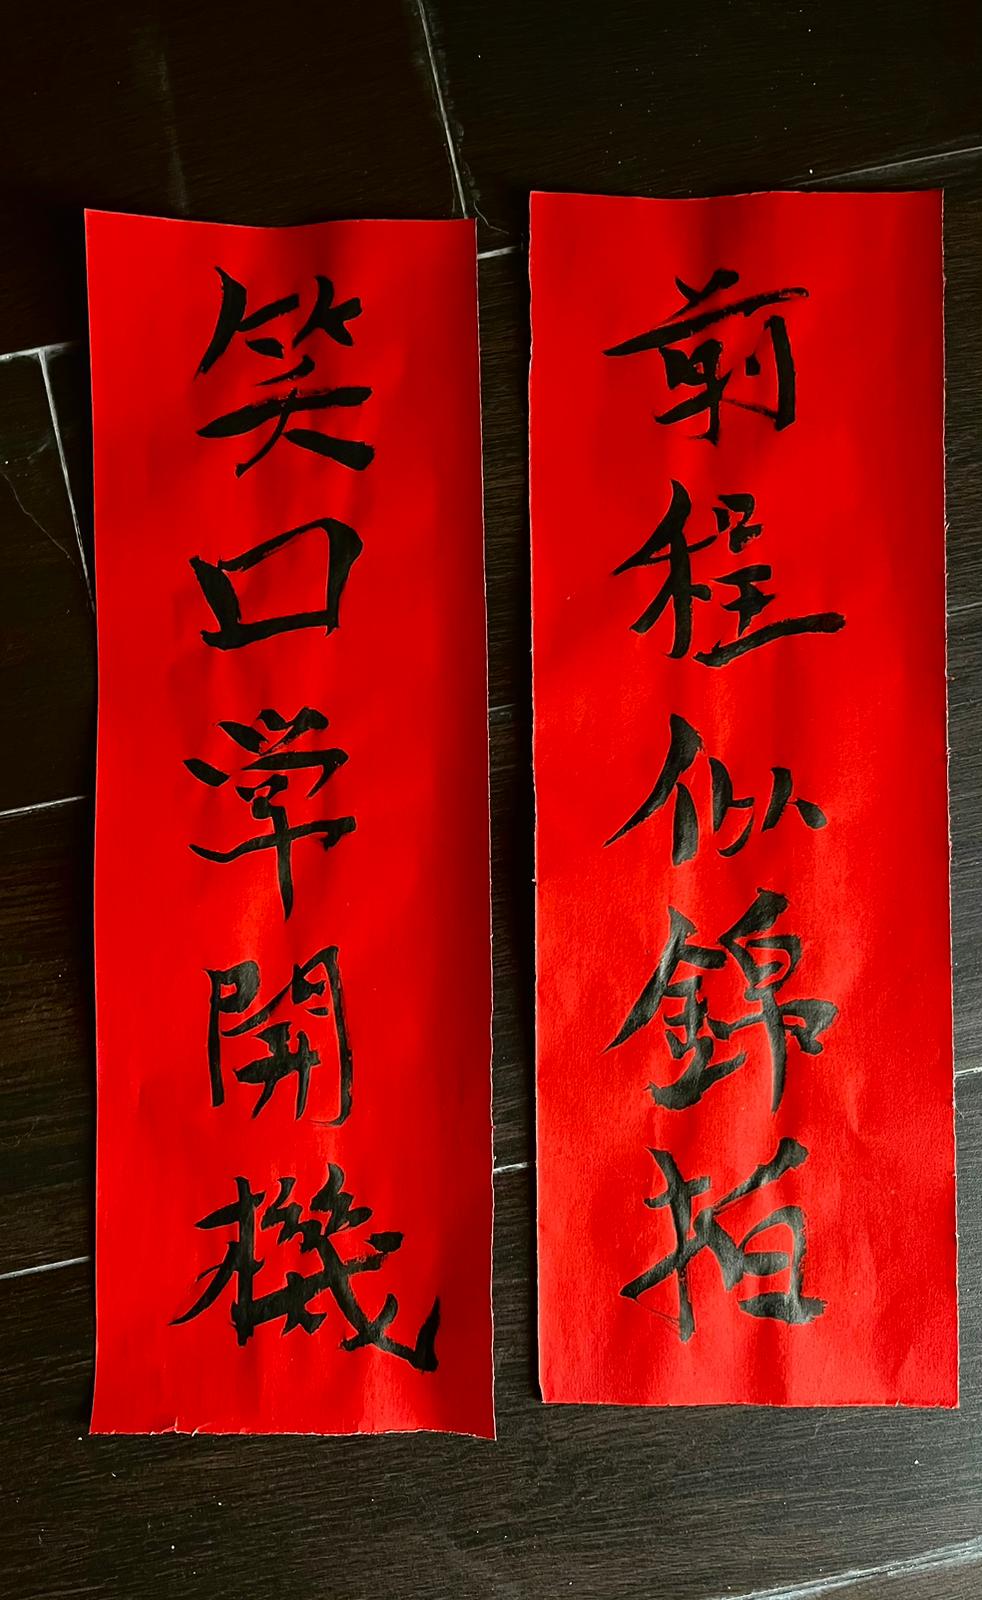 前程似錦拍
笑口常開機